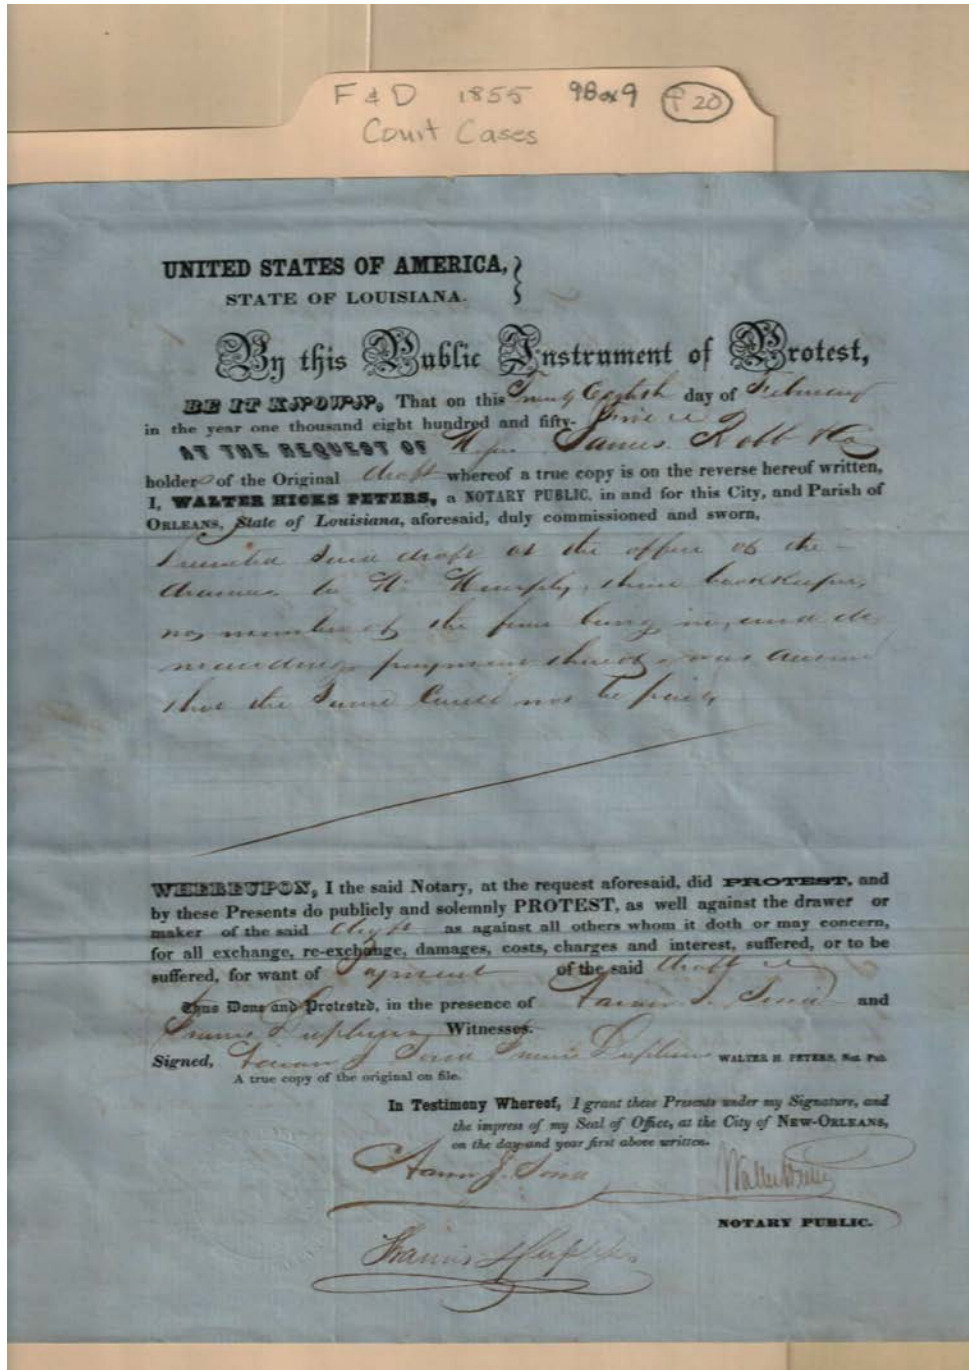 F & D 1855 9Box9 F 20
Court Cases
UNITED STATES OF AMERICA,
STATE OF LOUISIANA.
By this Public Instrument of Protest,
BE IT KNOWN, That on this Twenty Eighth day of February
in the year one thousand eight hundred and fifty-
AT THE REQUEST OF James Robb & Co
holders of the Original draft whereof a true copy is on the reverse hereof written,
I, WALTER HICKS PETERS, a NOTARY PUBLIC, in and for this City, and Parish of
ORLEANS, State of Louisiana, aforesaid, duly commissioned and sworn,
Presented said draft at the office of the
to Murphy, their bookkeeper,
no member of the firm being in, and de
manding payment thereof was
that the same could not be paid,
WHEREUPON, I the said Notary, at the request aforesaid, did PROTEST, and
by these Presents do publicly and solemnly PROTEST, as well against the drawer or
maker of the said draft as against all others whom it doth or may concern,
for all exchange, re-exchange, damages, costs, charges and interest, suffered, or to be
suffered, for want of payment of the said draft
Thus Done and Protested, in the presence of and
Witnesses.
Signed, WALTER H. PETERS, Not. Pub.
A true copy of the original on file.
In Testimony Whereof, I grant these Presents under my Signature, and
the impress of my Seal of Office, at the City of NEW-ORLEANS,
on the day and year first above written.
NOTARY PUBLIC.
Francis